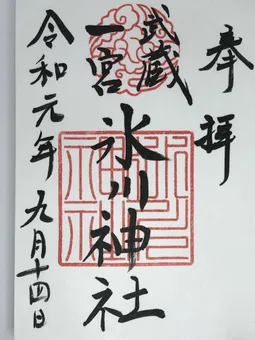 奉拝
武蔵
一宮
氷川神社
令和元年九月十四日